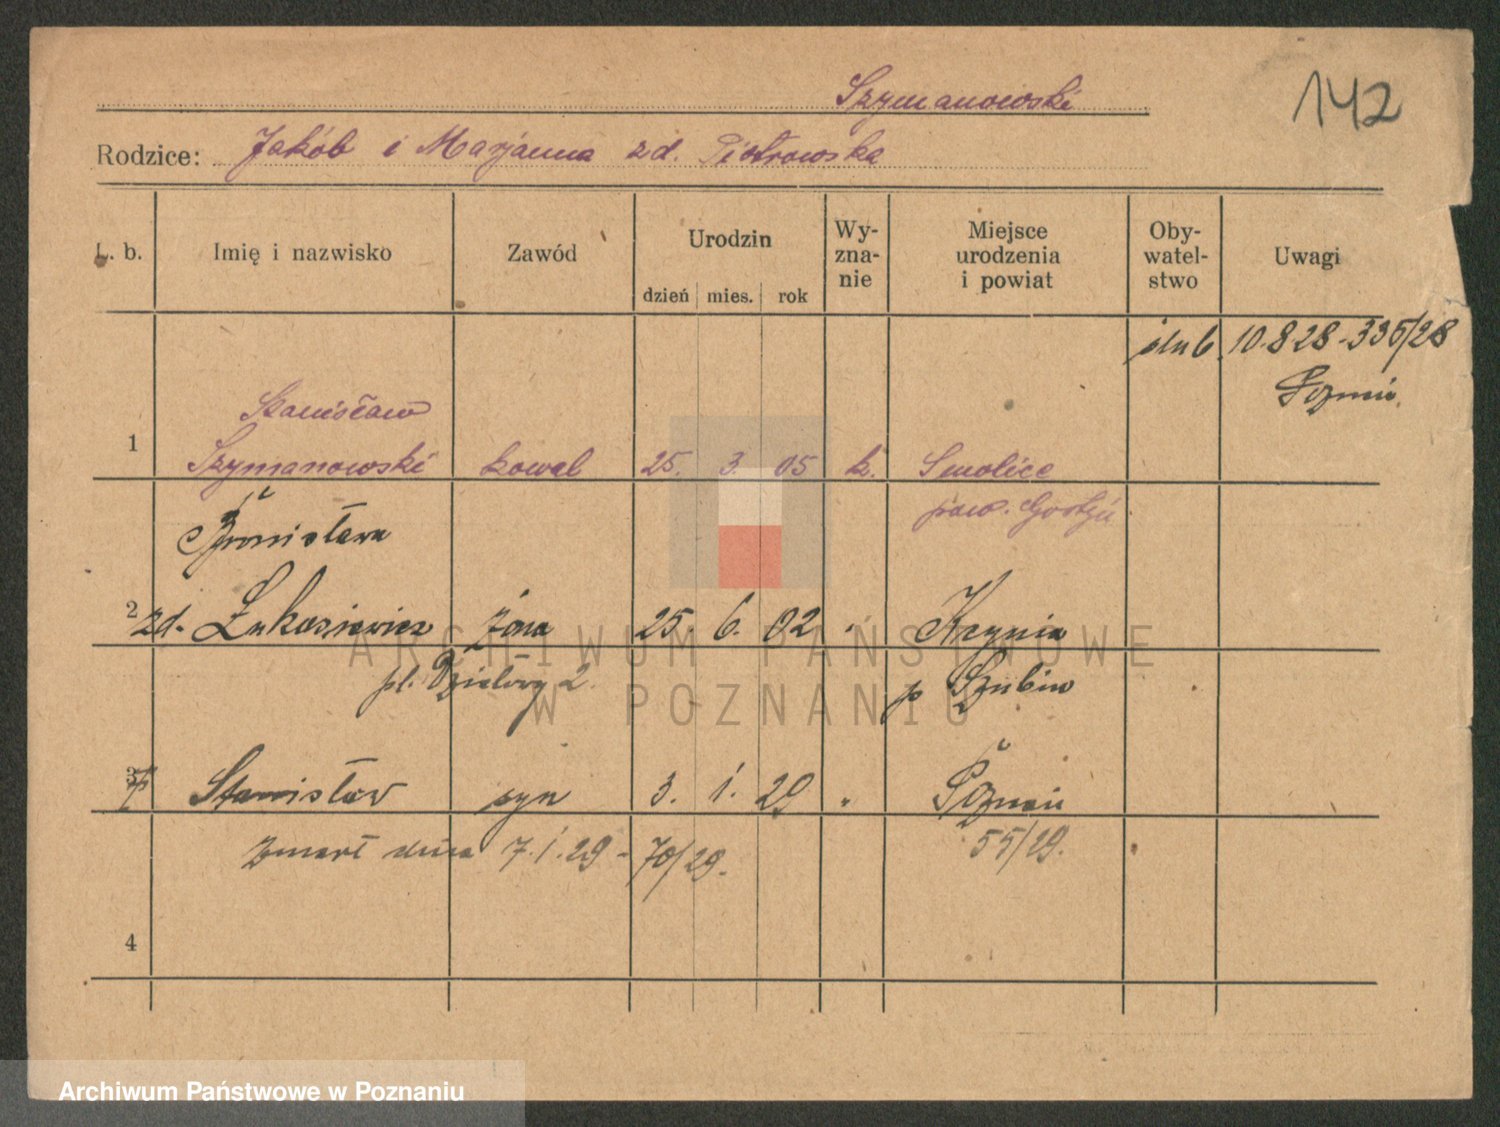 142
Szymanowski
Rodzice: Jakób i Marjanna zd. Piotrowska
L. b. Imię i nazwisko Zawód Urodzin dzień mies. rok Wy-zna-nie Miejsce urodzenia i powiat Oby-watel-stwo Uwagi
ślub 10.8 28 - 335/28
Poznań
Stanisław
1 Szymanowski kowal 25. 3. 05 k. Smolice
pow. Gostyń
Bronisława
2 zd. Łukasiewicz żona 25. 6. 02 " Kcynia
pl. Działowy 2. p Szubin
3 Stanisław syn 3. 1. 29 " Poznań
zmarł dnia 7.1.29 - 70/29. 55/29.
4
ARCHIWUM PAŃSTWOWE
W POZNANIU
Archiwum Państwowe w Poznaniu